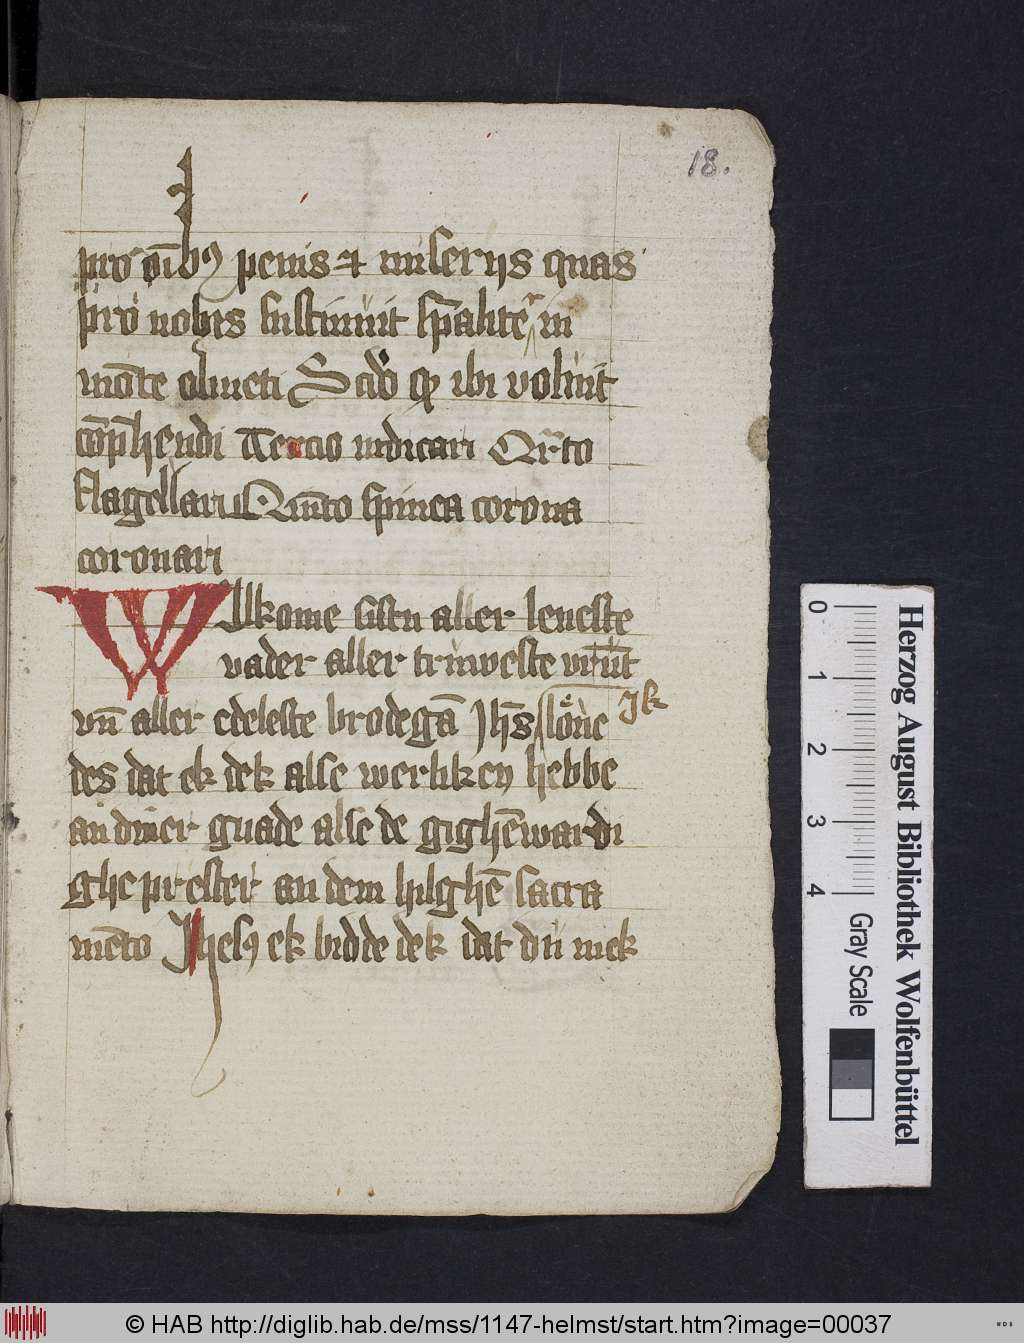 18.
pro oı̄bꝯ penis et miseriis quas
pro nobis sustinuit sp̄alite in
mōte oliueti Scd̓o ꝙ ibi voluit
cōp̄hendi Tercio iudicari Qrto
flagellari Qui̅to spinea corona
coronari
Wlkome sistu aller leueste
vader aller truweste vrūt
vn̄ aller edeleste brodegā Jhs̄ Ik
des dat ek dek alse werliken hebbe
an diner gnade alse de gighēwardi
ghe prester an dem hilghē sacra
mēto Jhesꝯ ek bidde dek dat du mek
0 1 2 3 4 Gray Scale
Herzog August Bibliothek Wolfenbüttel
© HAB http://diglib.hab.de/mss/1147-helmst/start.htm?image=00037
WDB